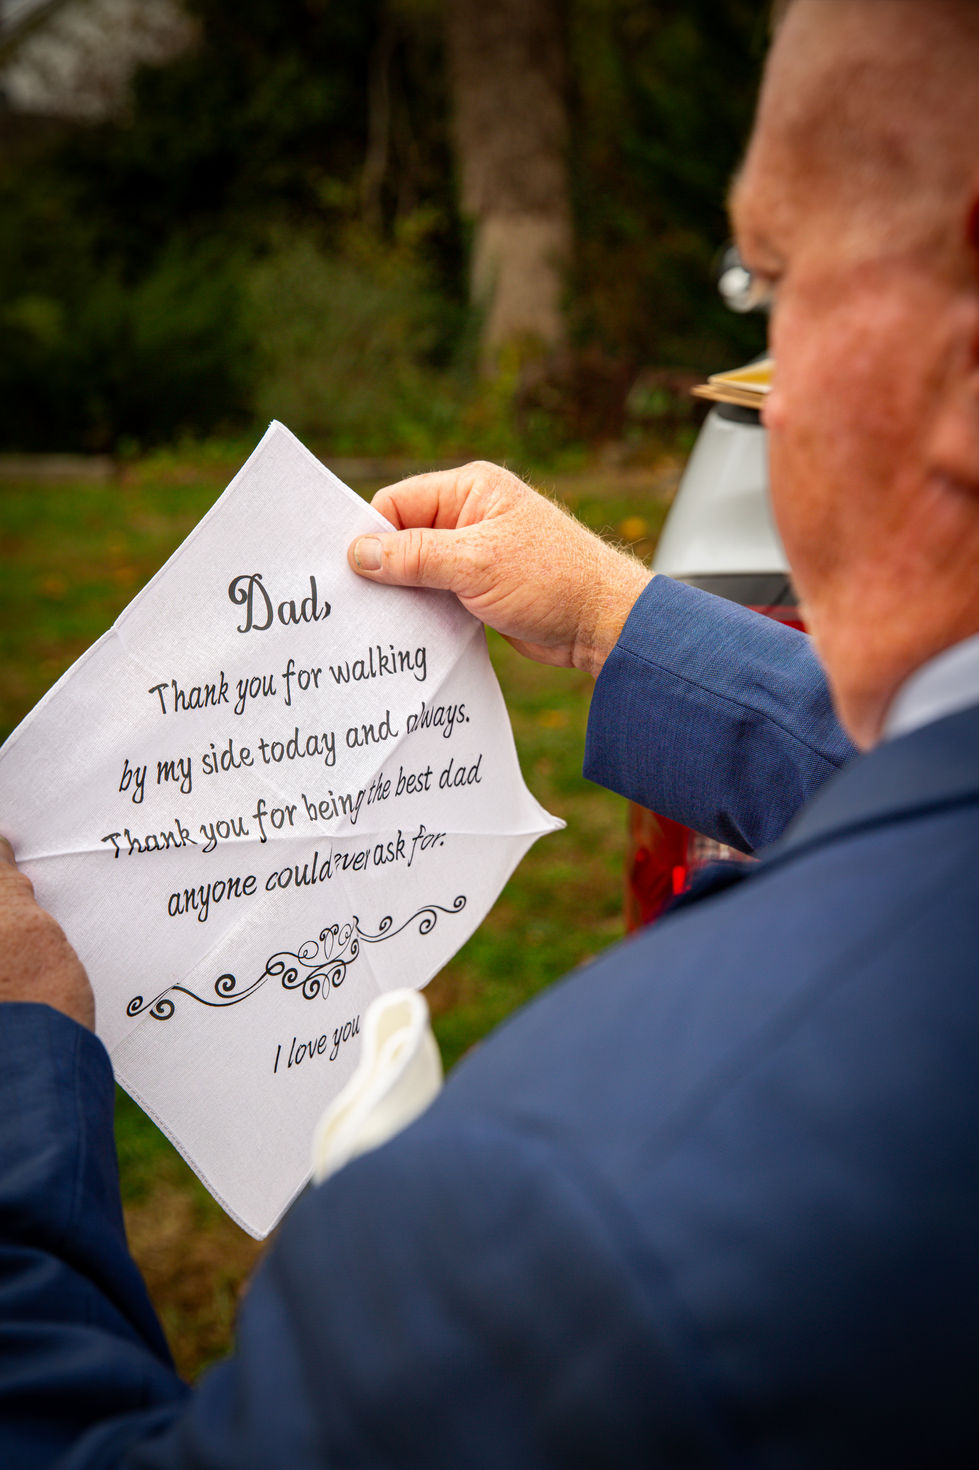 Dad,
Thank you for walking
by my side today and always.
Thank you for being the best dad
anyone could ever ask for.
I love you